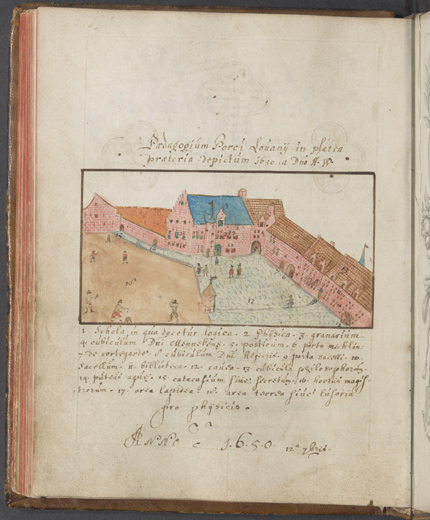 Pædagogium Porci Lovanij in platea
prateria depictum 1650 a Dno A. W.
1. Schola in qua docetur logica. 2 Physica. 3. granarium
4 cubiculum Dni 5. posticum. 6 porta
7 de cubiculum Dni Regentis 9 porta sacelli. 10
sacellum. 11 bibliotheca. 12 cauea. 13 cubicula philosophorum.
14 putei aquæ. 15 siue secretum. 16 hortus magis-
trorum. 17. area lapidea. 18. area terrea siue lusoria
pro physicis.
Anno 1.6.5.0 12